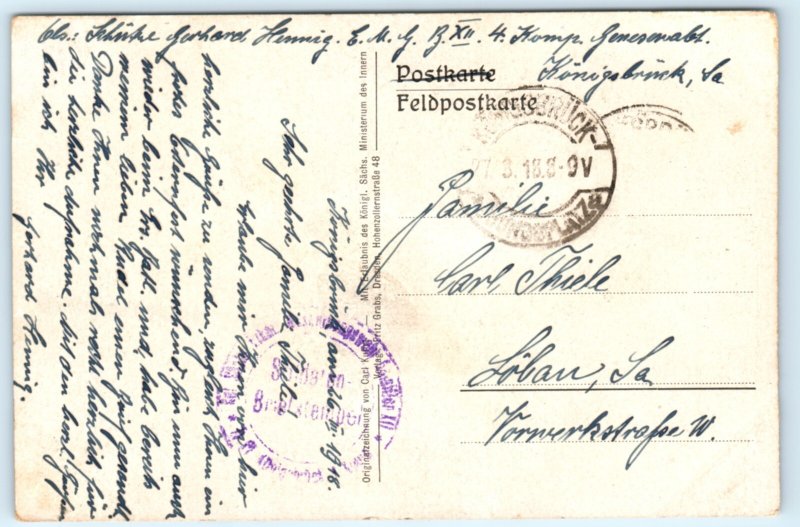 Abs.: Schütze Gerhard Hennig. E. M. G. B. XII. 4. Komp. Genesenabt.
Königsbrück, Sa
Postkarte
Feldpostkarte
KÖNIGSBRÜCK-
27.3.18.8-9V
Familie
Carl Thiele
Löbau, Sa.
Vorwerkstraße W.
Originalzeichnung von Carl
Mit Erlaubnis des Königl. Sächs. Ministerium des Innern
Verlag: Fritz Grabs, Dresden, Hohenzollernstraße 48
Soldaten-
Briefstempel
Königsbrück, am 1918.
Sehr geehrte Familie Thiele
Erlaube mir Ihnen von hier
herzliche Grüße zu senden, zugleich Ihnen ein
frohes Osterfest wünschend. Bin nun auch
wieder beim Ers. Batl. und habe bereits
meinen lieben
Danke Ihnen nochmals recht herzlich für
die herzliche Aufnahme. Mit den herzl. Grüßen
bin ich Ihr
Gerhard Hennig.